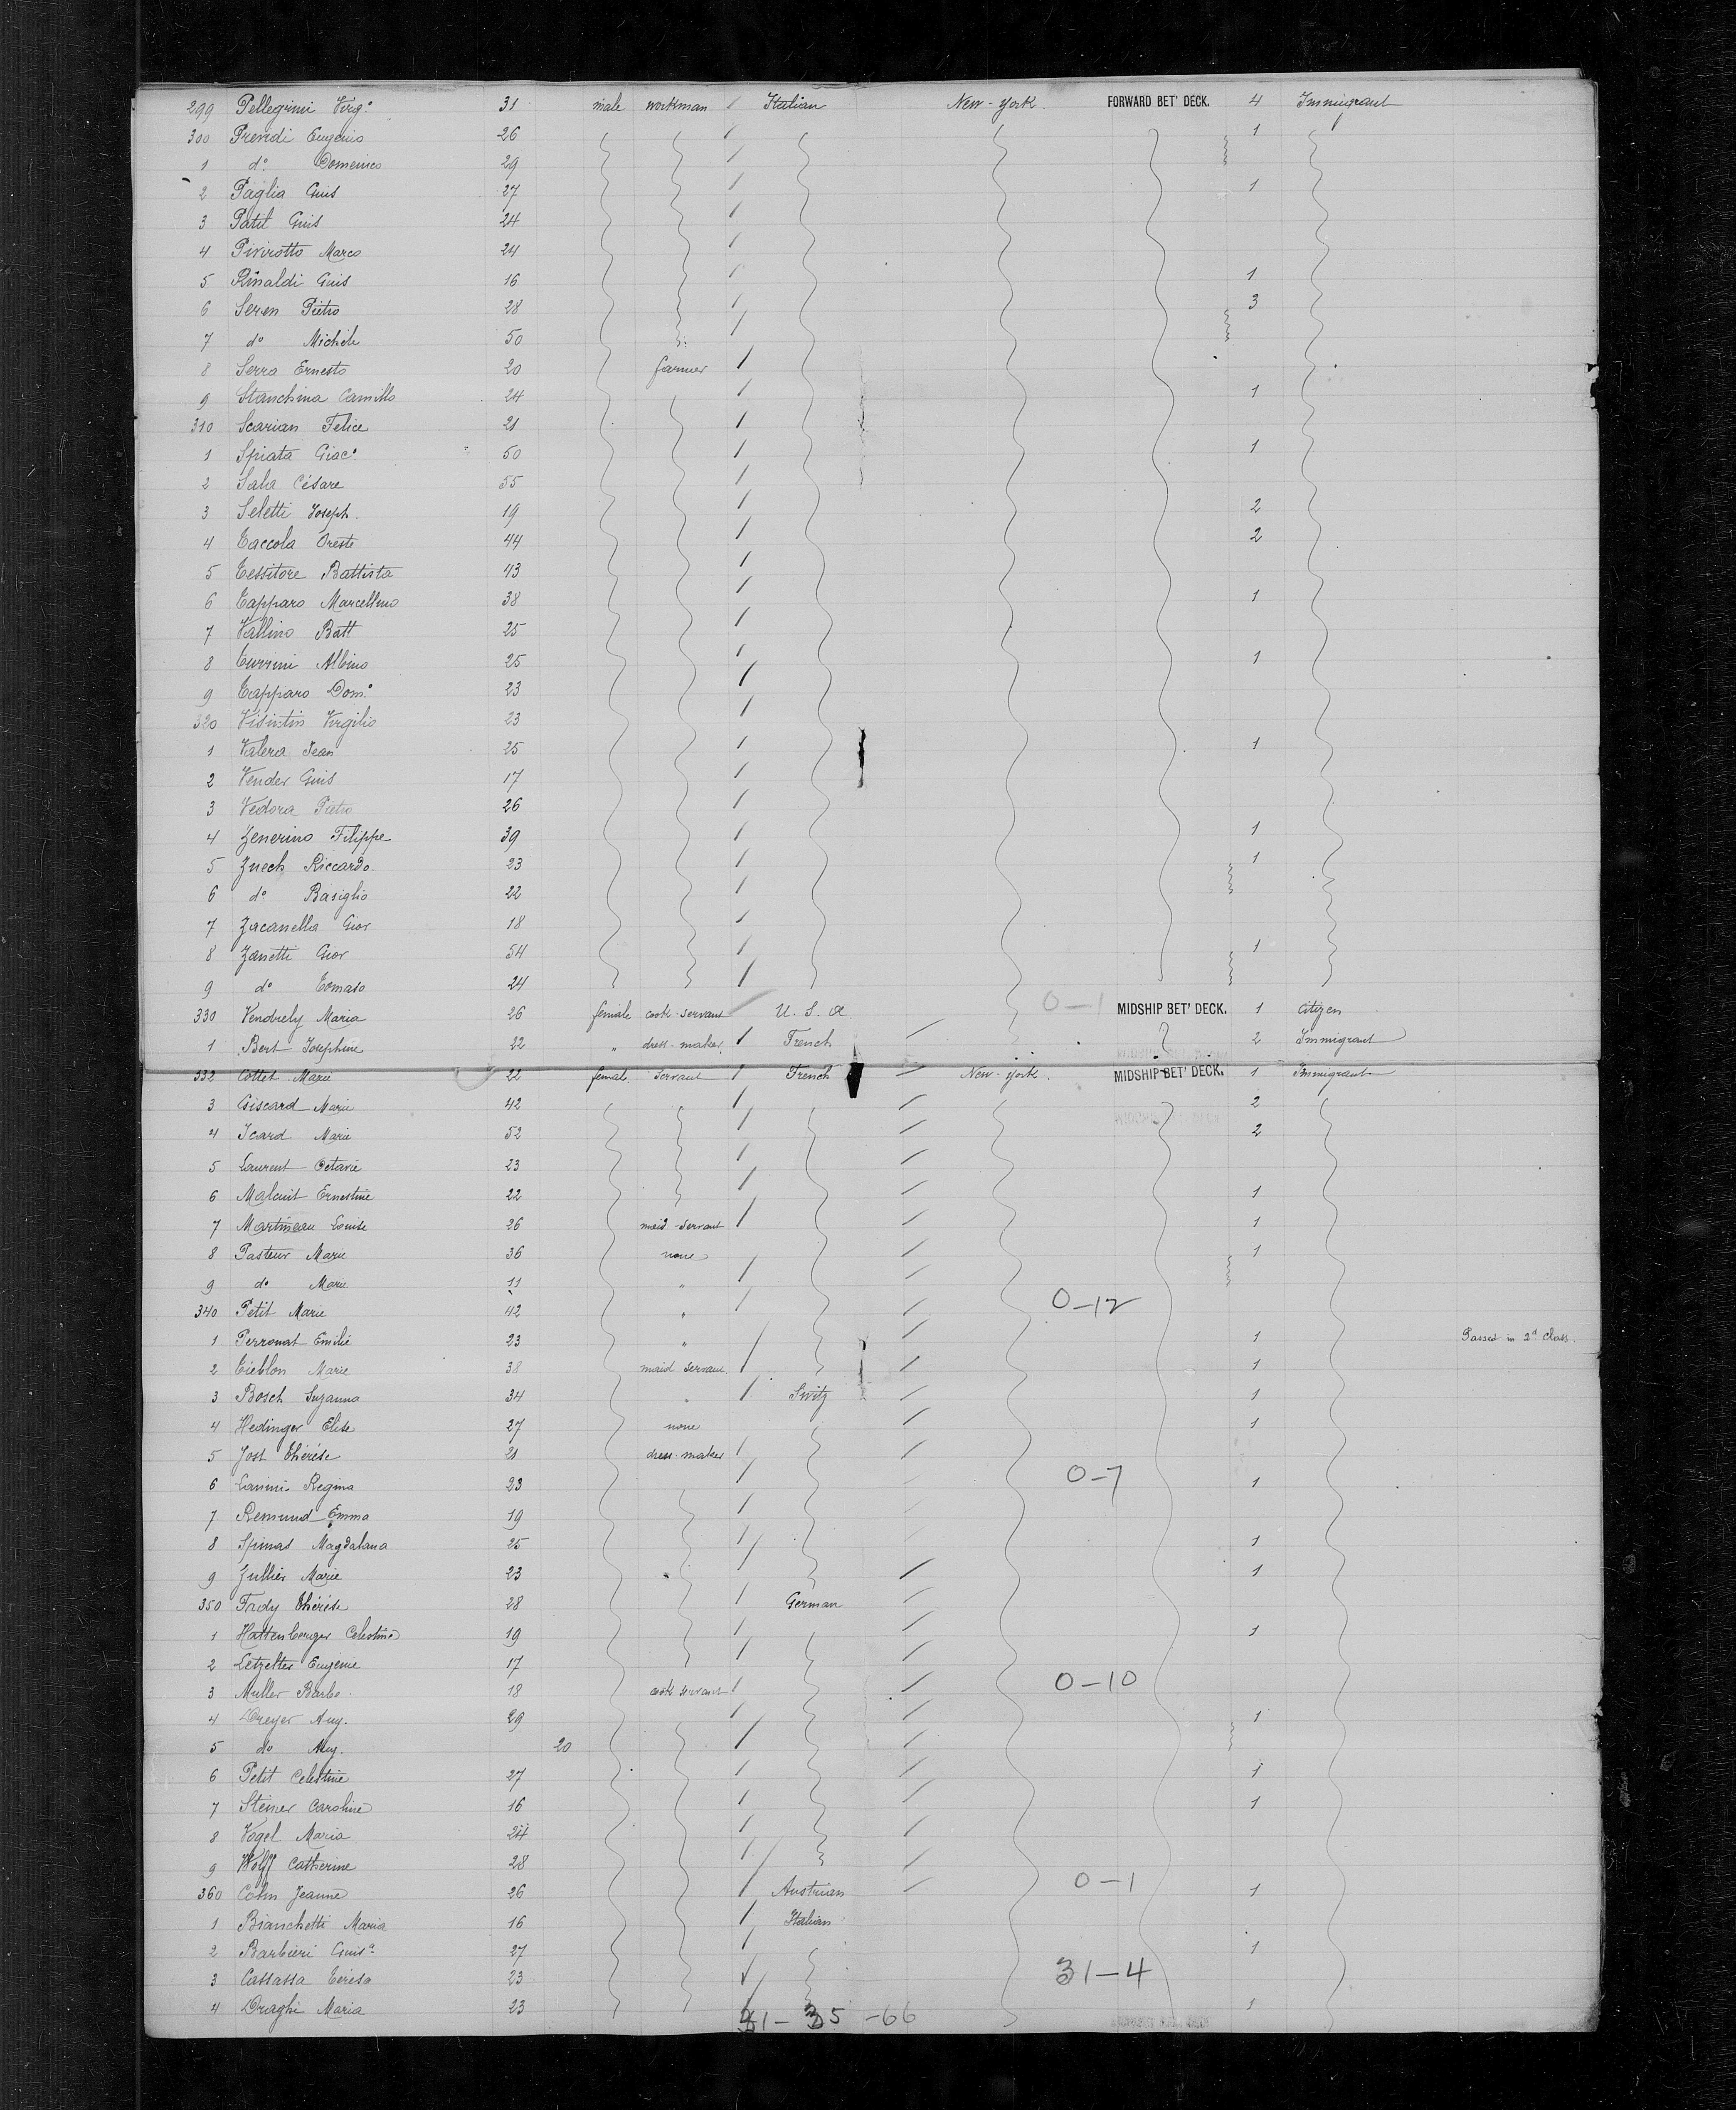 299 Pellegrini Virg.° 31 male workman Italian New-York. FORWARD BET' DECK. 4 Immigrant
300 Prendi Eugenio 26 1
1 d° Domenico 29
2 Paglia Guis 27 1
3 Patil Guis 24
4 Pivirotto Marco 24
5 Rinaldi Guis 16 1
6 Seren Pietro 28 3
7 d° Michele 50
8 Serra Ernesto 20 farmer
9 Stanchina Camillo 24 1
310 Scarian Felice 21
1 Spiata Giac.° 50 1
2 Sala Césare 55
3 Seletti Joseph. 19 2
4 Taccola Oreste 44 2
5 Tessitore Battista 43
6 Tapparo Marcellino 38 1
7 Vallino Batt 25
8 Turrini Albino 25 1
9 Tapparo Dom.° 23
320 Visintin Virgilio 23
1 Valera Jean 25 1
2 Vender Guis 17
3 Vedora Pietro 26
4 Zenerino Filippe 39 1
5 Zuech Riccardo 23 1
6 d° Basiglio 22
7 Zacanella Gior 18
8 Zanetti Gior 54 1
9 d° Tomaso 24
330 Vendrely Maria 26 female cook-servant U. S. A. 0-1 MIDSHIP BET' DECK. 1 citizen
1 Bert Josephine 22 " dress-maker French 2 Immigrant
332 Cottet Marie 22 female servant French New-York. MIDSHIP BET' DECK. 1 Immigrant
3 Giscard Marie 42 2
4 Icard Marie 52 2
5 Laurent Octavie 23
6 Malcuit Ernestine 22 1
7 Martineau Louise 26 maid-servant 1
8 Pasteur Marie 36 none 1
9 d° Marie 11 "
340 Petit Marie 42 " 0-12
1 Perronat Emilie 23 " 1 Passed in 2d Class.
2 Tieblon Marie 38 maid servant 1
3 Bosch Suzanna 34 " Switz 1
4 Hedinger Elise 27 none 1
5 Jost Thérèse 21 dress-maker
6 Lanini Regina 23 0-7 1
7 Remund Emma 19
8 Spinas Magdalana 25 1
9 Zullier Marie 23 1
350 Frdy Thérèse 28 German
1 Hattenberger Celestine 19 1
2 Letzelter Eugenie 17
3 Muller Barbe. 18 cook servant 0-10
4 Dreyer Aug. 29 1
5 do Aug. 20
6 Petit Celestine 27 1
7 Steiner Caroline 16 1
8 Vogel Maria 24
9 Wolff Catherine 28
360 Cohn Jeanne 26 Austrian 0-1 1
1 Bianchetti Maria 16 Italian
2 Barbieri Guis.a 27 1
3 Cassassa Teresa 23 31-4
4 Draghi Maria 23 1
31- 35 -66